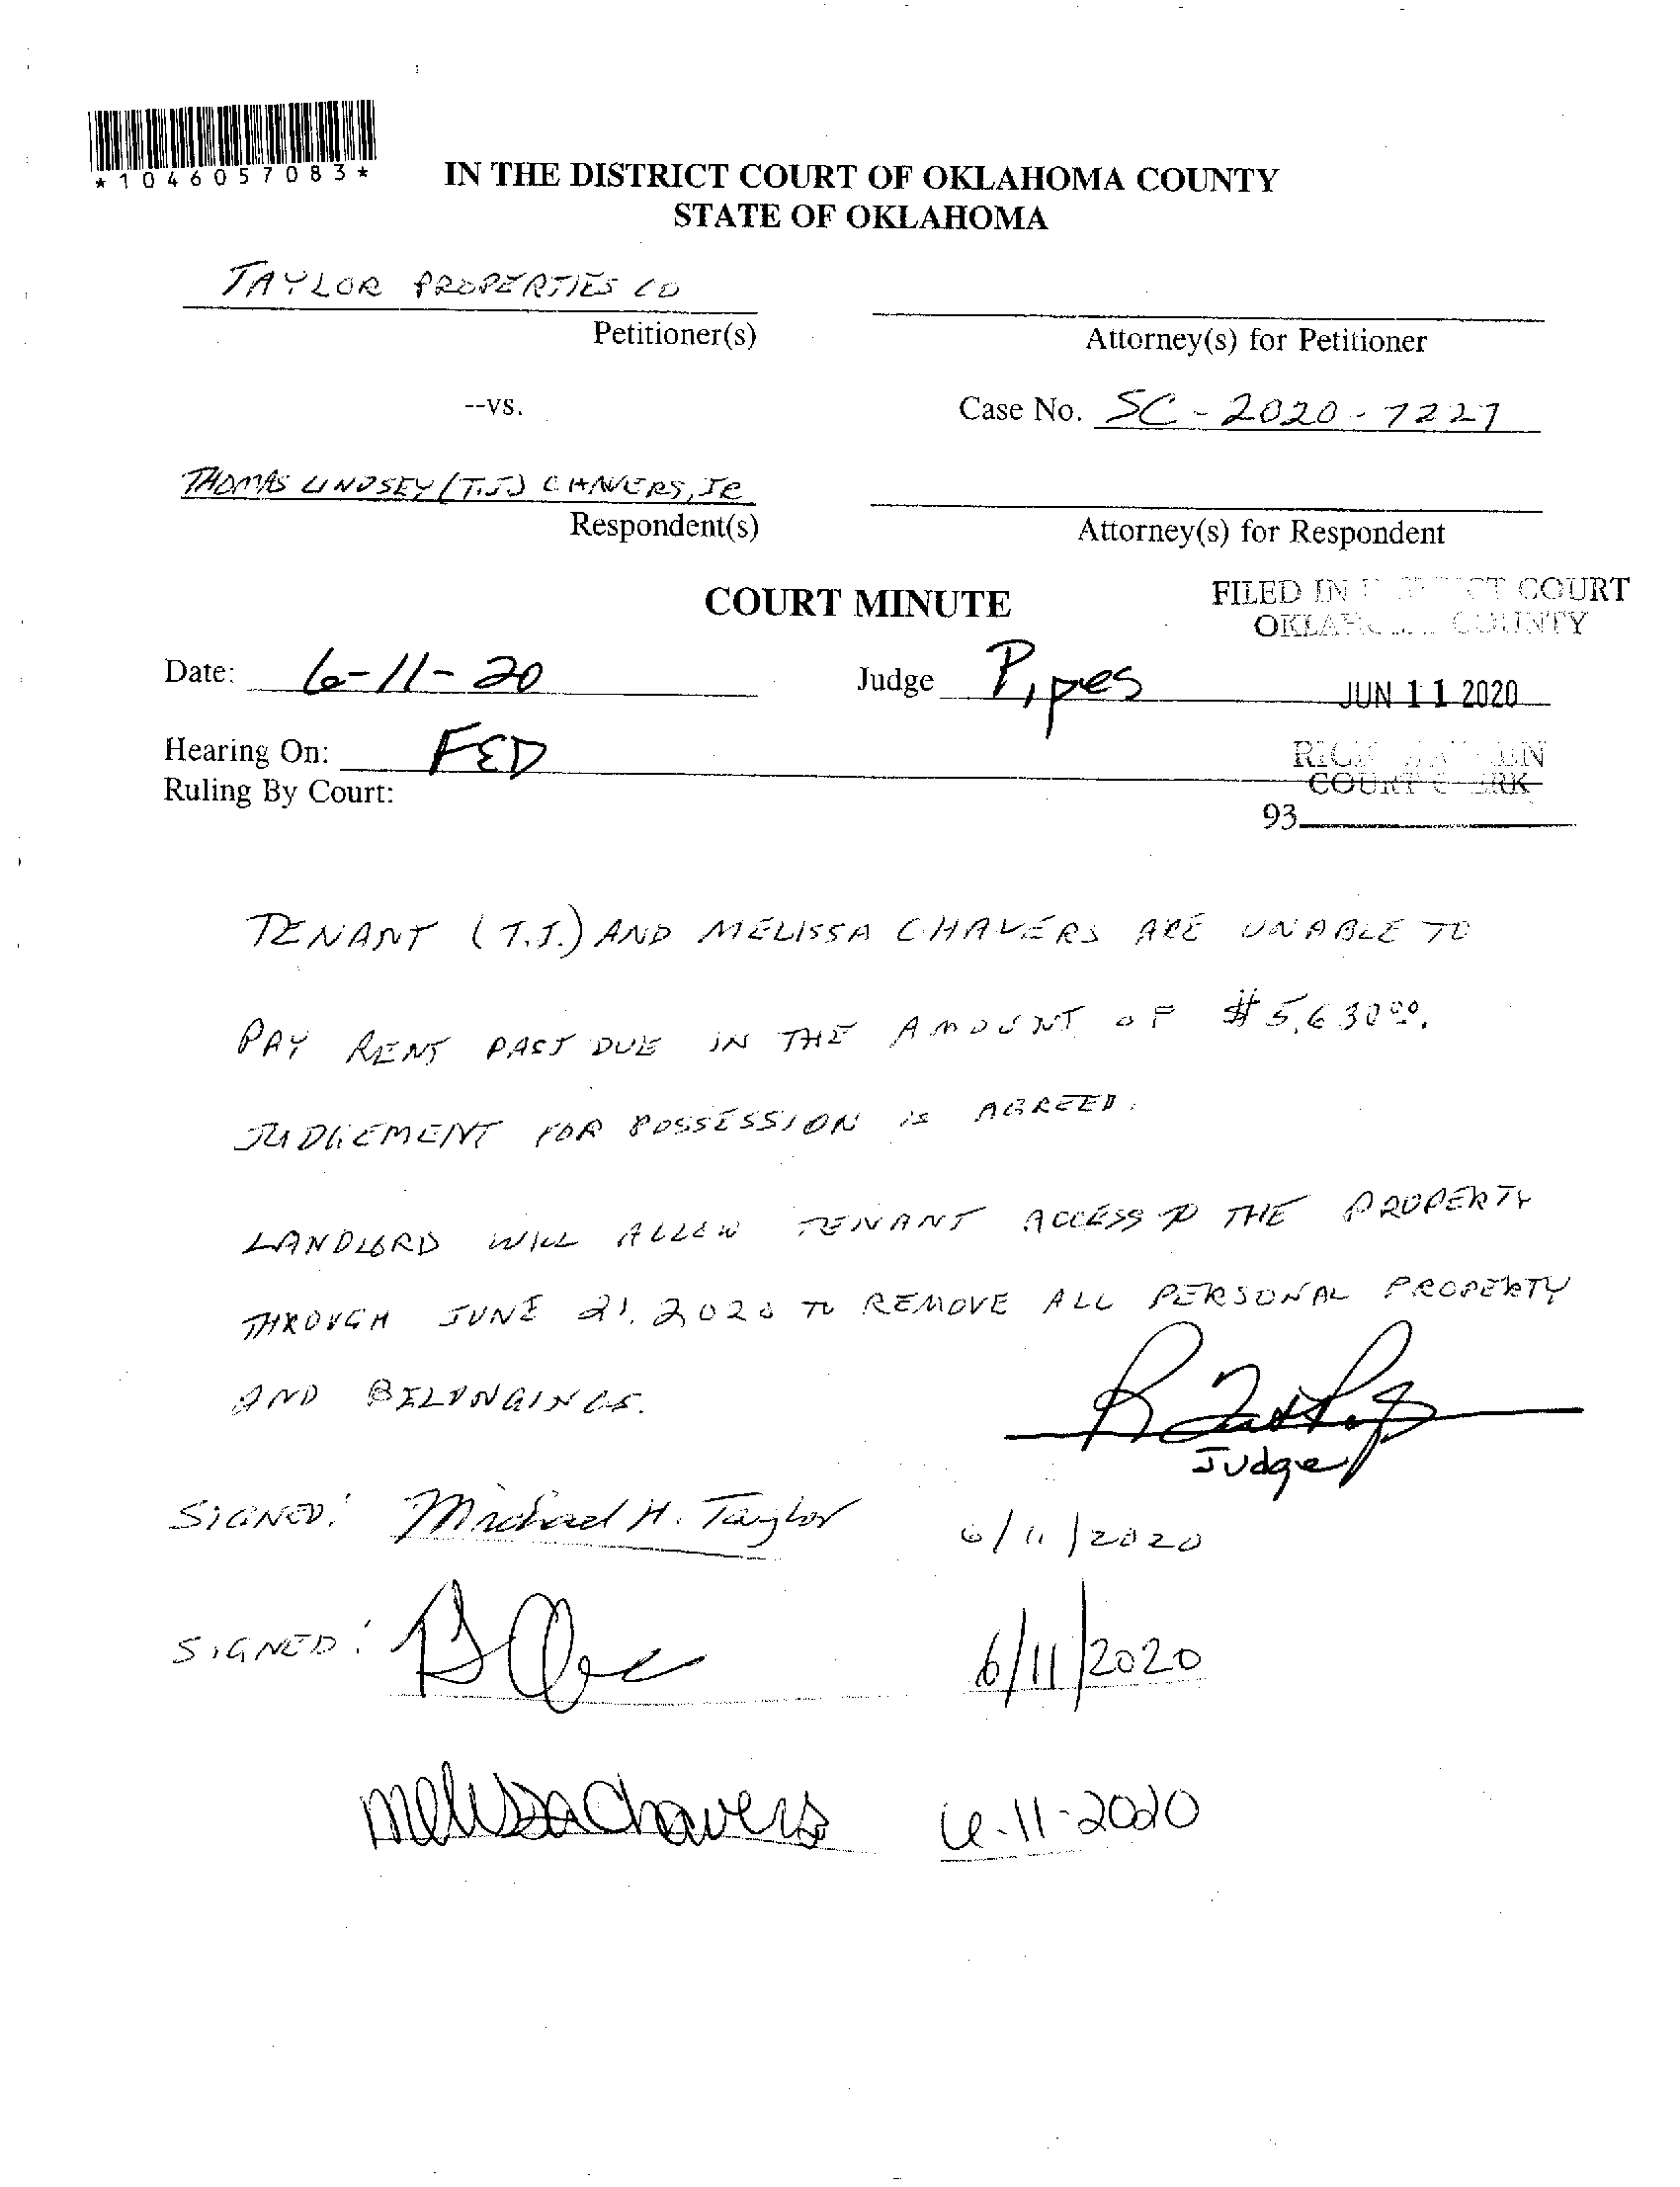 *1046057083*
IN THE DISTRICT COURT OF OKLAHOMA COUNTY
STATE OF OKLAHOMA
TAYLOR PROPERTIES CO
Petitioner(s)
Attorney(s) for Petitioner
--vs.
Case No. SC-2020-7227
THOMAS LINDSEY (T.J.) CHAVERS, JR
Respondent(s)
Attorney(s) for Respondent
COURT MINUTE
FILED IN COURT
COUNTY
Date: 6-11-20
Judge Pipes
JUN 11 2020
Hearing On: FED
COURT
Ruling By Court:
93
TENANT (T.J.) AND MELISSA CHAVERS ARE UNABLE TO
PAY RENT PAST DUE IN THE AMOUNT OF $5,630.00.
JUDGEMENT FOR POSSESSION IS AGREED.
LANDLORD WILL ALLOW TENANT ACCESS TO THE PROPERTY
THROUGH JUNE 21, 2020 TO REMOVE ALL PERSONAL PROPERTY
AND BELONGINGS.
Judge
SIGNED: Michael H. Taylor 6/11/2020
SIGNED: 6/11/2020
Melissa Chavers 6-11-2020